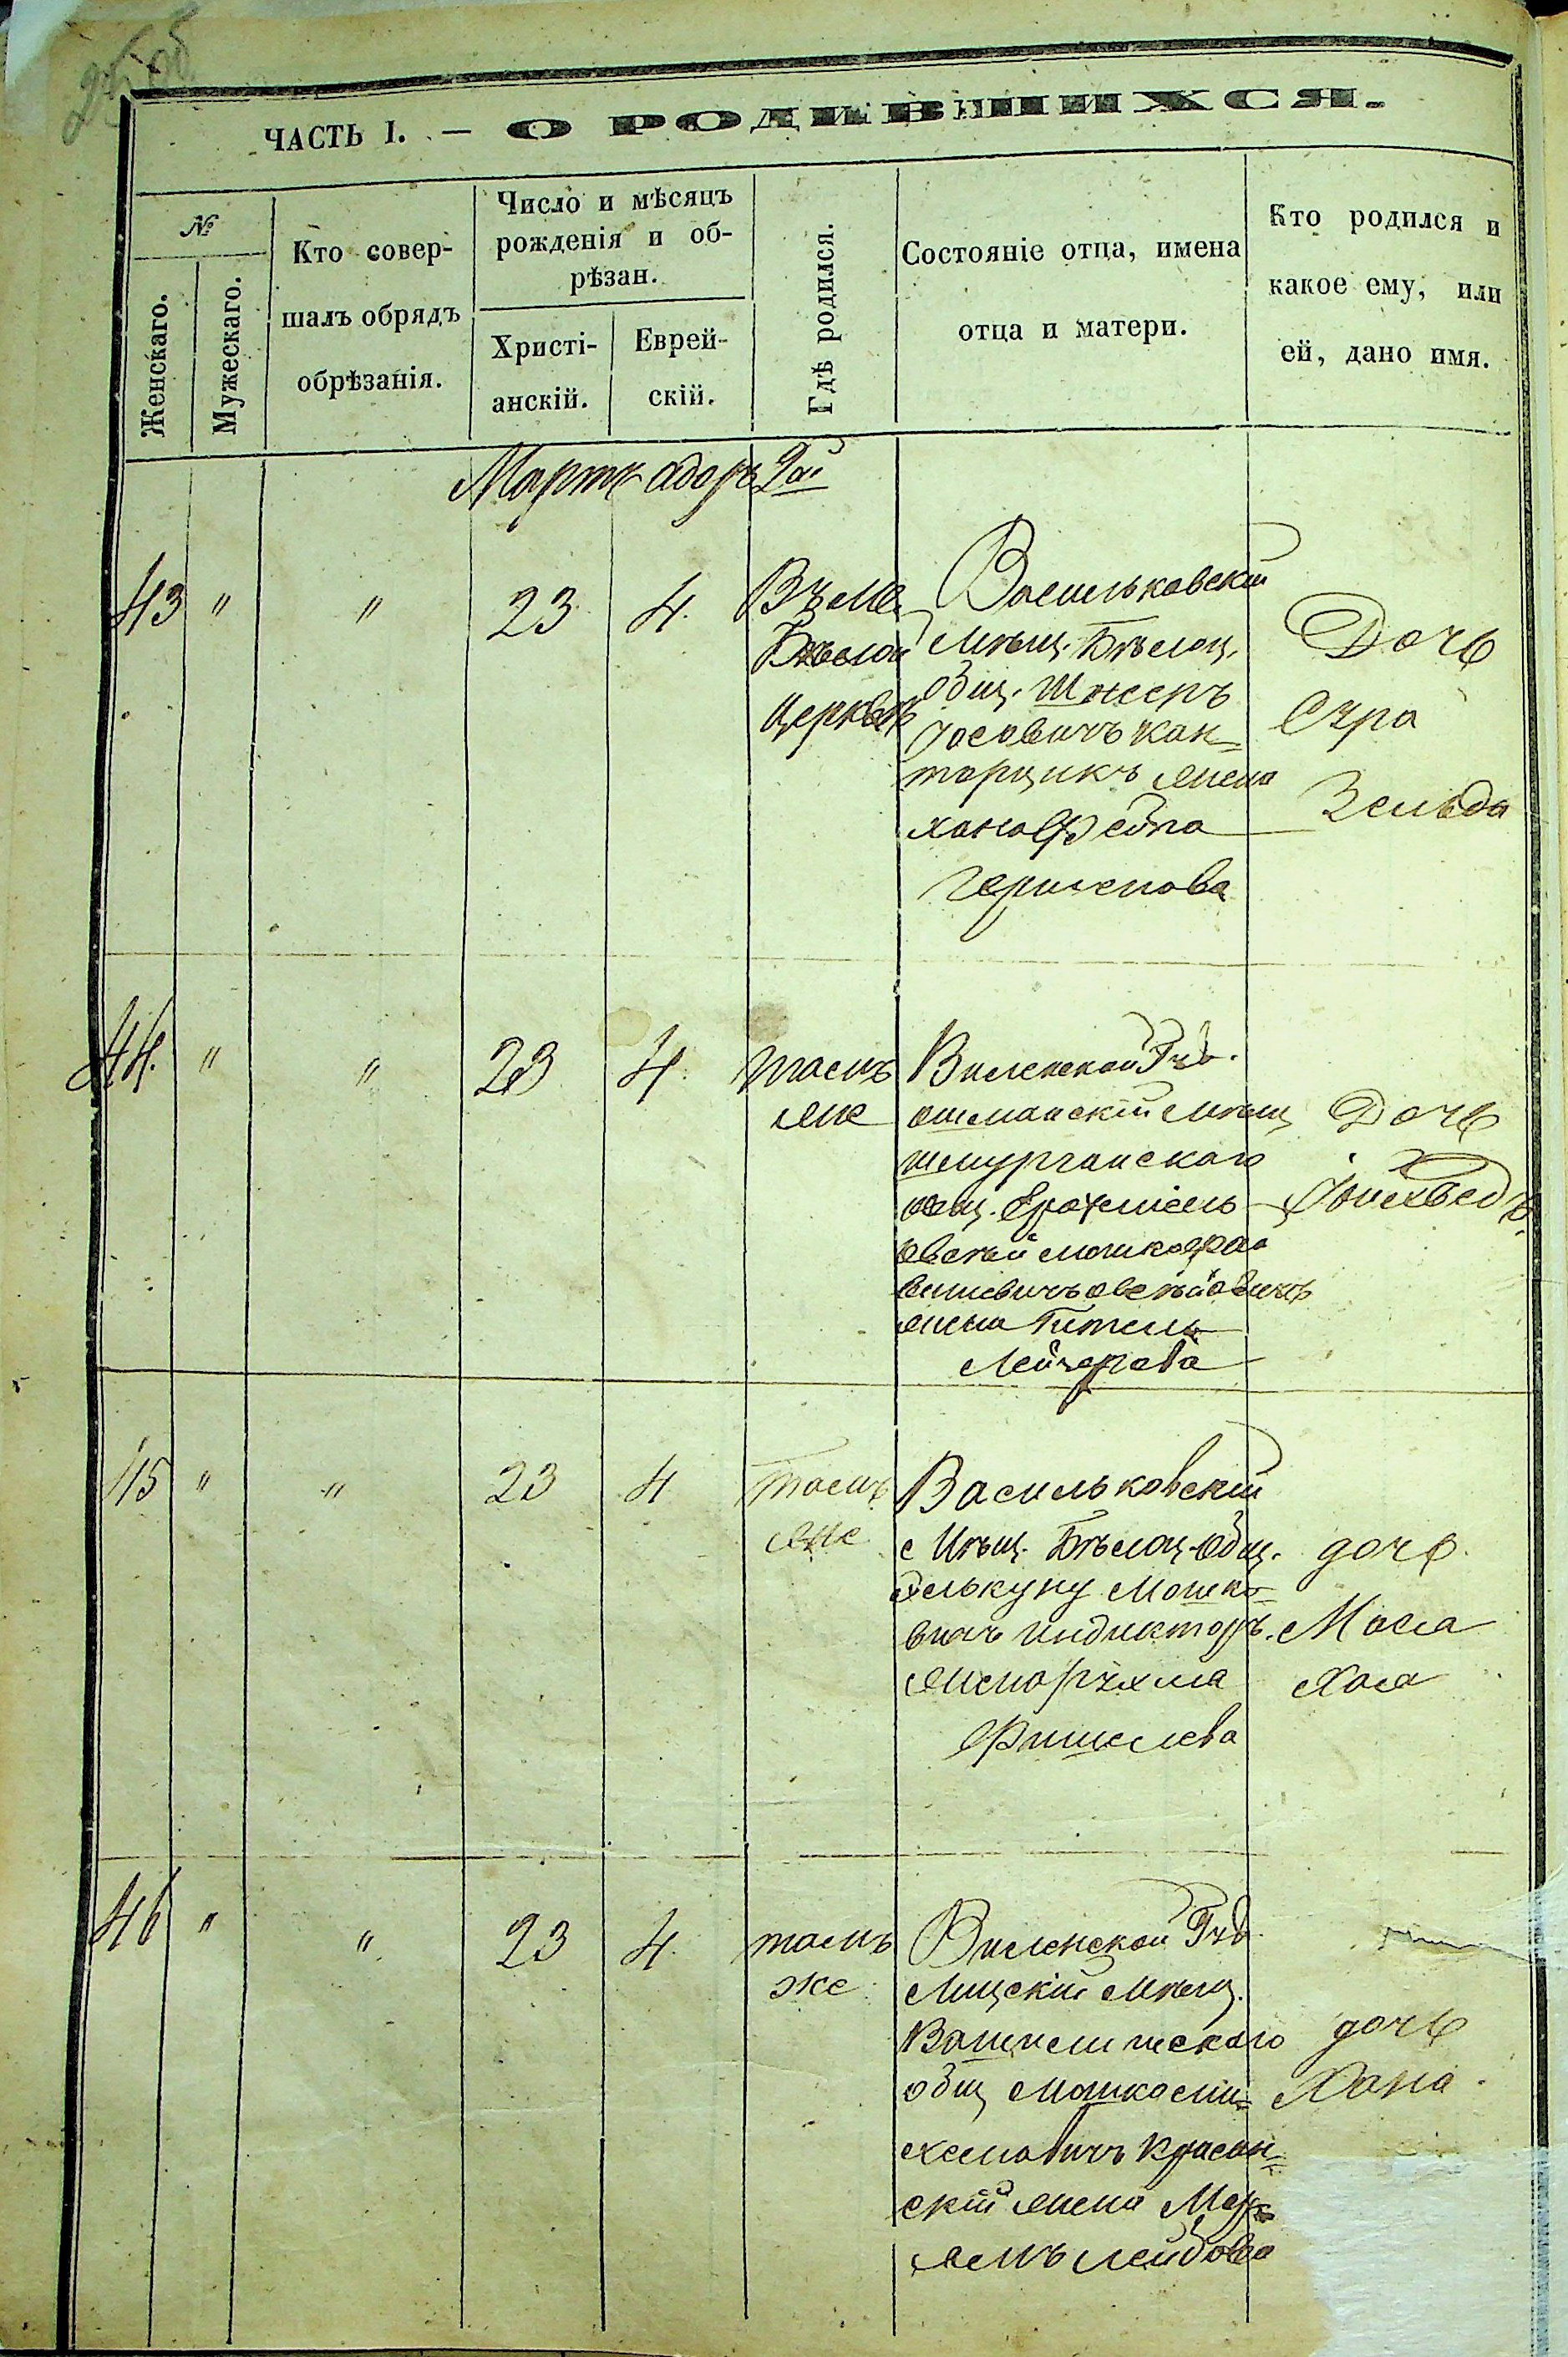 25 об
ЧАСТЬ I. — О РОДИВШИХСЯ.
№
Женскаго.
Мужескаго.
Кто совер-
шалъ обрядъ
обрѣзанія.
Число и мѣсяцъ
рожденія и об-
рѣзан.
Христі-
анскій.
Еврей-
скій.
Гдѣ родился.
Состояніе отца, имена
отца и матери.
Кто родился и
какое ему, или
ей, дано имя.
Мартъ адаръ 2й
43 " " 23 4.
Въ ме.
Бѣлой
Церкве
Васильковскій
мѣщ. Бѣлоц.
общ.
Іосевичъ Кан=
торщикъ жена
хана Фейга
Гершкова
Дочь
Сура
Зельда
44. " " 23 4.
тамъ
же
Виленской Губ.
ошманскій мѣщ
шмурганскаго
общ. Ерахміель
Овсѣй мошко
овсѣйовичъ
жена Гитель
Лейзерова
Дочь
45 " " 23 4
тамъ
же
Васильковскій
Мѣщ. Бѣлоц. Общ.
Мошко=
вичъ индикторъ.
жена рухля
Фишелева
дочь
Хая
46 " " 23 4.
тамъ
же
Виленской Губ.
Лидскій мѣщ.
общ мошко ми=
хелевичъ Красин=
скій жена Мер=
ямъ лейбова
дочь
Хана.